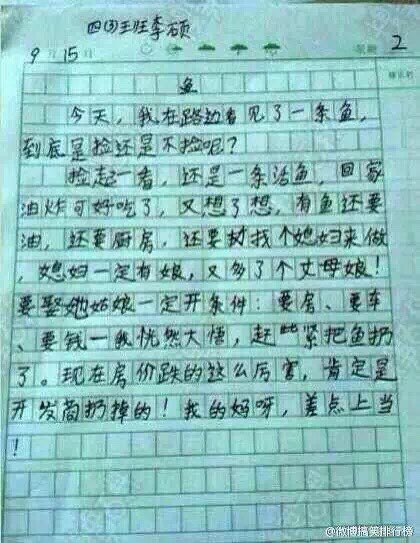 四(3)班 李硕
9月15日
2
鱼
今天，我在路边看见了一条鱼，
到底是捡还是不捡呢？
捡起一看，还是一条活鱼，回家
油炸可好吃了，又想了想，有鱼还要
油，还要厨房，还要找个媳妇来做
，媳妇一定有娘，又多了个丈母娘！
要娶她姑娘一定开条件：要房、要车
、要钱一我恍然大悟，赶紧把鱼扔
了。现在房价跌的这么厉害，肯定是
开发商扔掉的！我的妈呀，差点上当
！
@微博搞笑排行榜